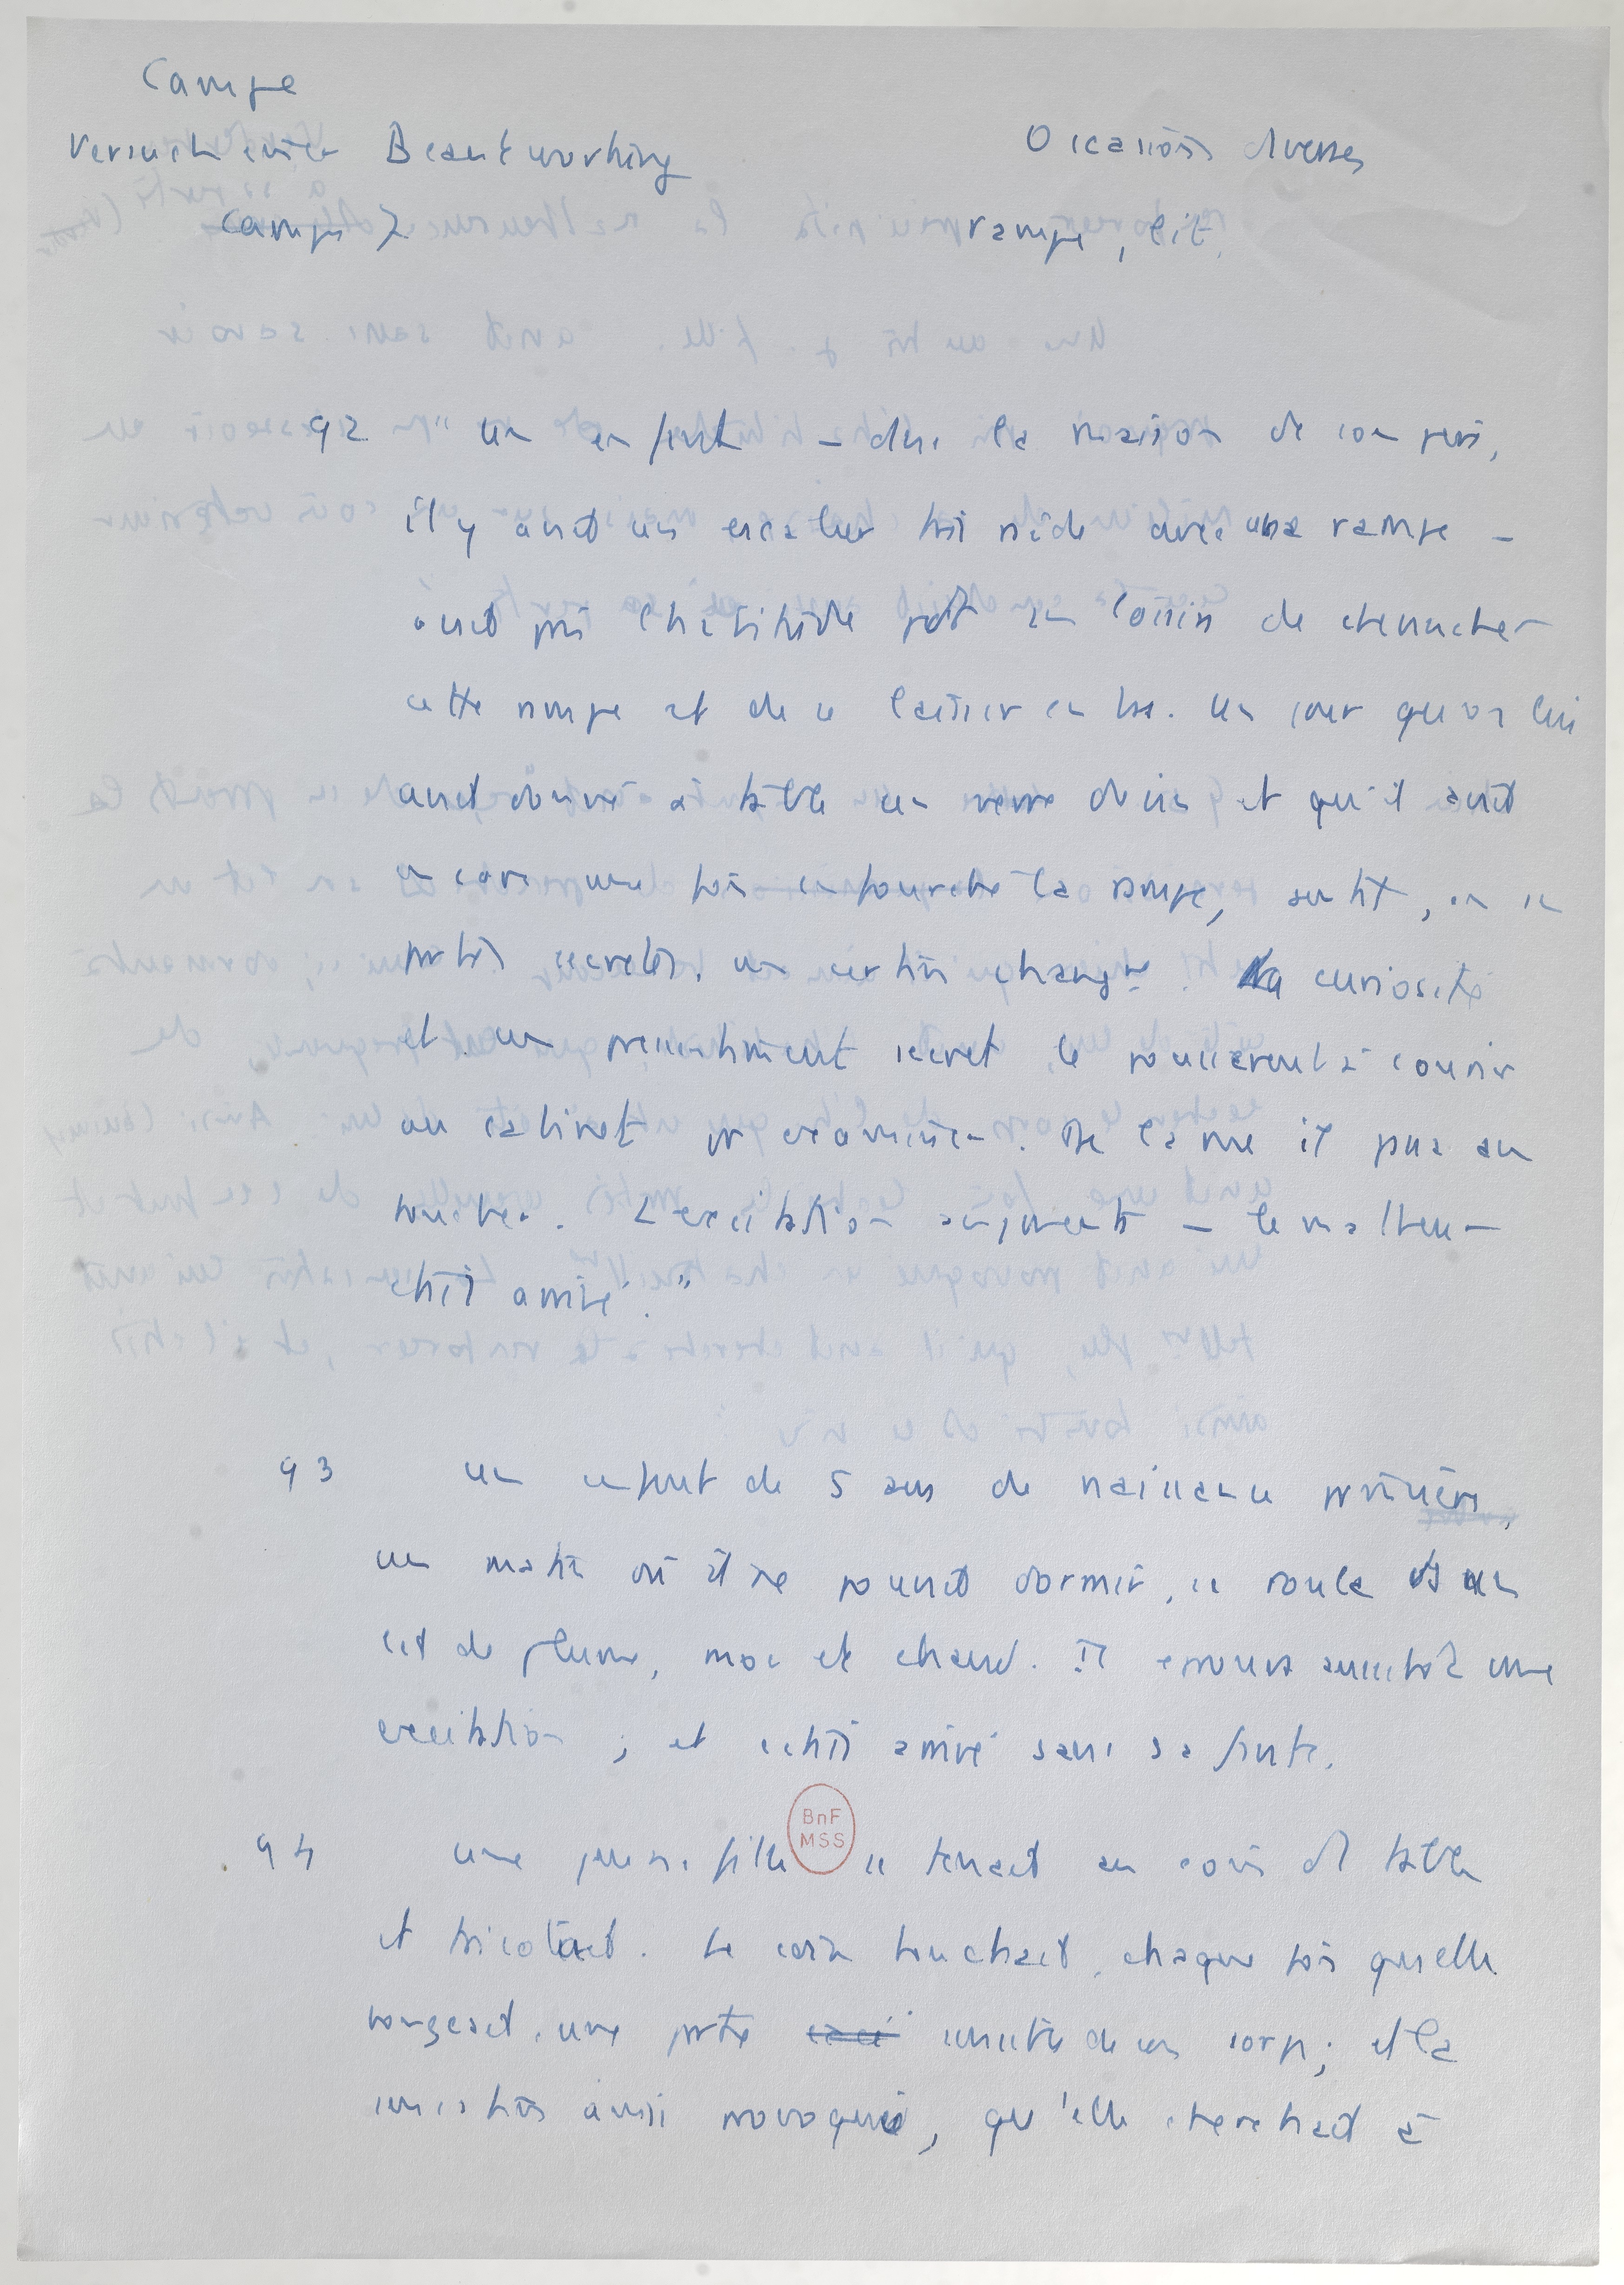 Campe
Versuch einer Beantworthing
Campe 7
Occasions diverses
rampe, lit.
92 " Un enfant – dans la maison de son père,
il y avait un escalier très raide avec une rampe –
avait pris l'habitude pdt ses loisirs de chevaucher
cette rampe et de se laisser en bas. Un jour qu'on lui
avait donné à table un verre de vin et qu'il avait
encore une fois enfourché la rampe, sentit, en ses
parties secrètes, un certain changt. La curiosité
et un pressentiment secret le poussèrent à courir
au cabinet pr examiner. De la vue il passa au
toucher. L'excitation augmenta – le malheur
était arrivé."
93 Un enfant de 5 ans de naissance
un matin où il ne pouvait dormir, se roula ds un
lit de plume, mou et chaud. Il éprouva aussitôt une
excitation ; et c'était arrivé sans sa faute.
94 Une jeune fille se tenait au coin de table
et tricotait. Le coin touchait, chaque fois qu'elle
bougeait, une partie secrète de son corps ; et la
sensation ainsi provoquée, qu'elle cherchait à
BnF
MSS